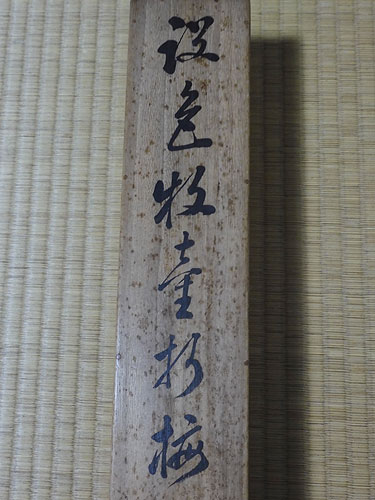 設色牧童折梅